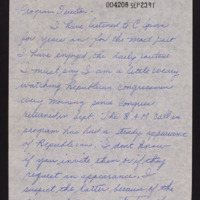 004208 SEP 23 91
Program Director -
I have listened to C span
for years and for the most part
I have enjoyed the daily routine
I must say I am a little weary
watching Republican congressmen
every morning since congress
reconvened Sept. The 8 A M call in
program has had a steady appearance
of Republicans. I don't know
if you invite them or if they
request an appearance. I
suspect the latter because of the